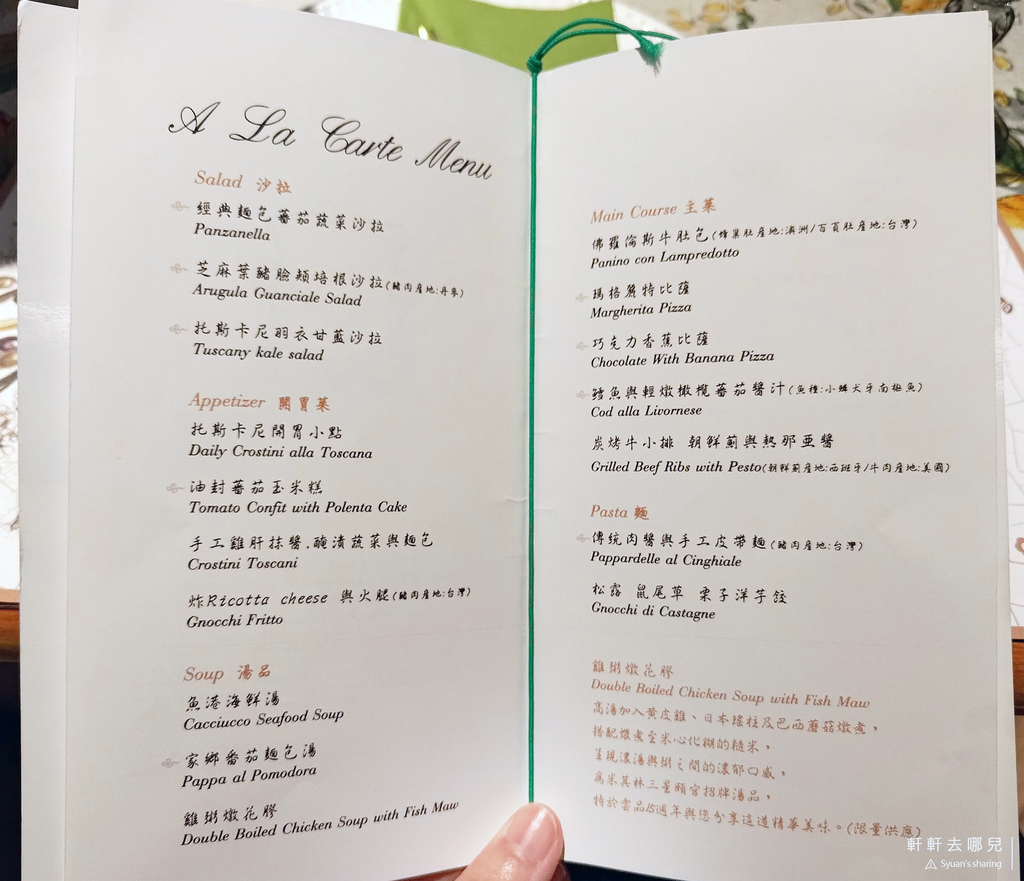 A La Carte Menu
Salad 沙拉
經典麵包蕃茄蔬菜沙拉
Panzanella
芝麻葉豬臉頰培根沙拉(豬肉產地:丹麥)
Arugula Guanciale Salad
托斯卡尼羽衣甘藍沙拉
Tuscany kale salad
Appetizer 開胃菜
托斯卡尼開胃小點
Daily Crostini alla Toscana
油封蕃茄玉米糕
Tomato Confit with Polenta Cake
手工雞肝抹醬.醃漬蔬菜與麵包
Crostini Toscani
炸Ricotta cheese 與火腿(豬肉產地:台灣)
Gnocchi Fritto
Soup 湯品
魚港海鮮湯
Cacciucco Seafood Soup
家鄉番茄麵包湯
Pappa al Pomodora
雞粥燉花膠
Double Boiled Chicken Soup with Fish Maw
Main Course 主菜
佛羅倫斯牛肚包(蜂巢肚產地:澳洲/百頁肚產地:台灣)
Panino con Lampredotto
瑪格麗特比薩
Margherita Pizza
巧克力香蕉比薩
Chocolate With Banana Pizza
鱈魚與輕燉橄欖蕃茄醬汁(魚種:小鱗犬牙南極魚)
Cod alla Livornese
炭烤牛小排 朝鮮薊與熱那亞醬
Grilled Beef Ribs with Pesto(朝鮮薊產地:西班牙/牛肉產地:美國)
Pasta 麵
傳統肉醬與手工皮帶麵(豬肉產地:台灣)
Pappardelle al Cinghiale
松露 鼠尾草 栗子洋芋餃
Gnocchi di Castagne
雞粥燉花膠
Double Boiled Chicken Soup with Fish Maw
高湯加入黃皮雞、日本瑤柱及巴西蘑菇燉煮,
搭配煨煮至米心化糊的糙米,
呈現濃湯與粥之間的濃郁口感,
為米其林三星頤宮招牌湯品,
特於雲品15週年與您分享這道精華美味。(限量供應)
軒軒去哪兒
Syuan's sharing